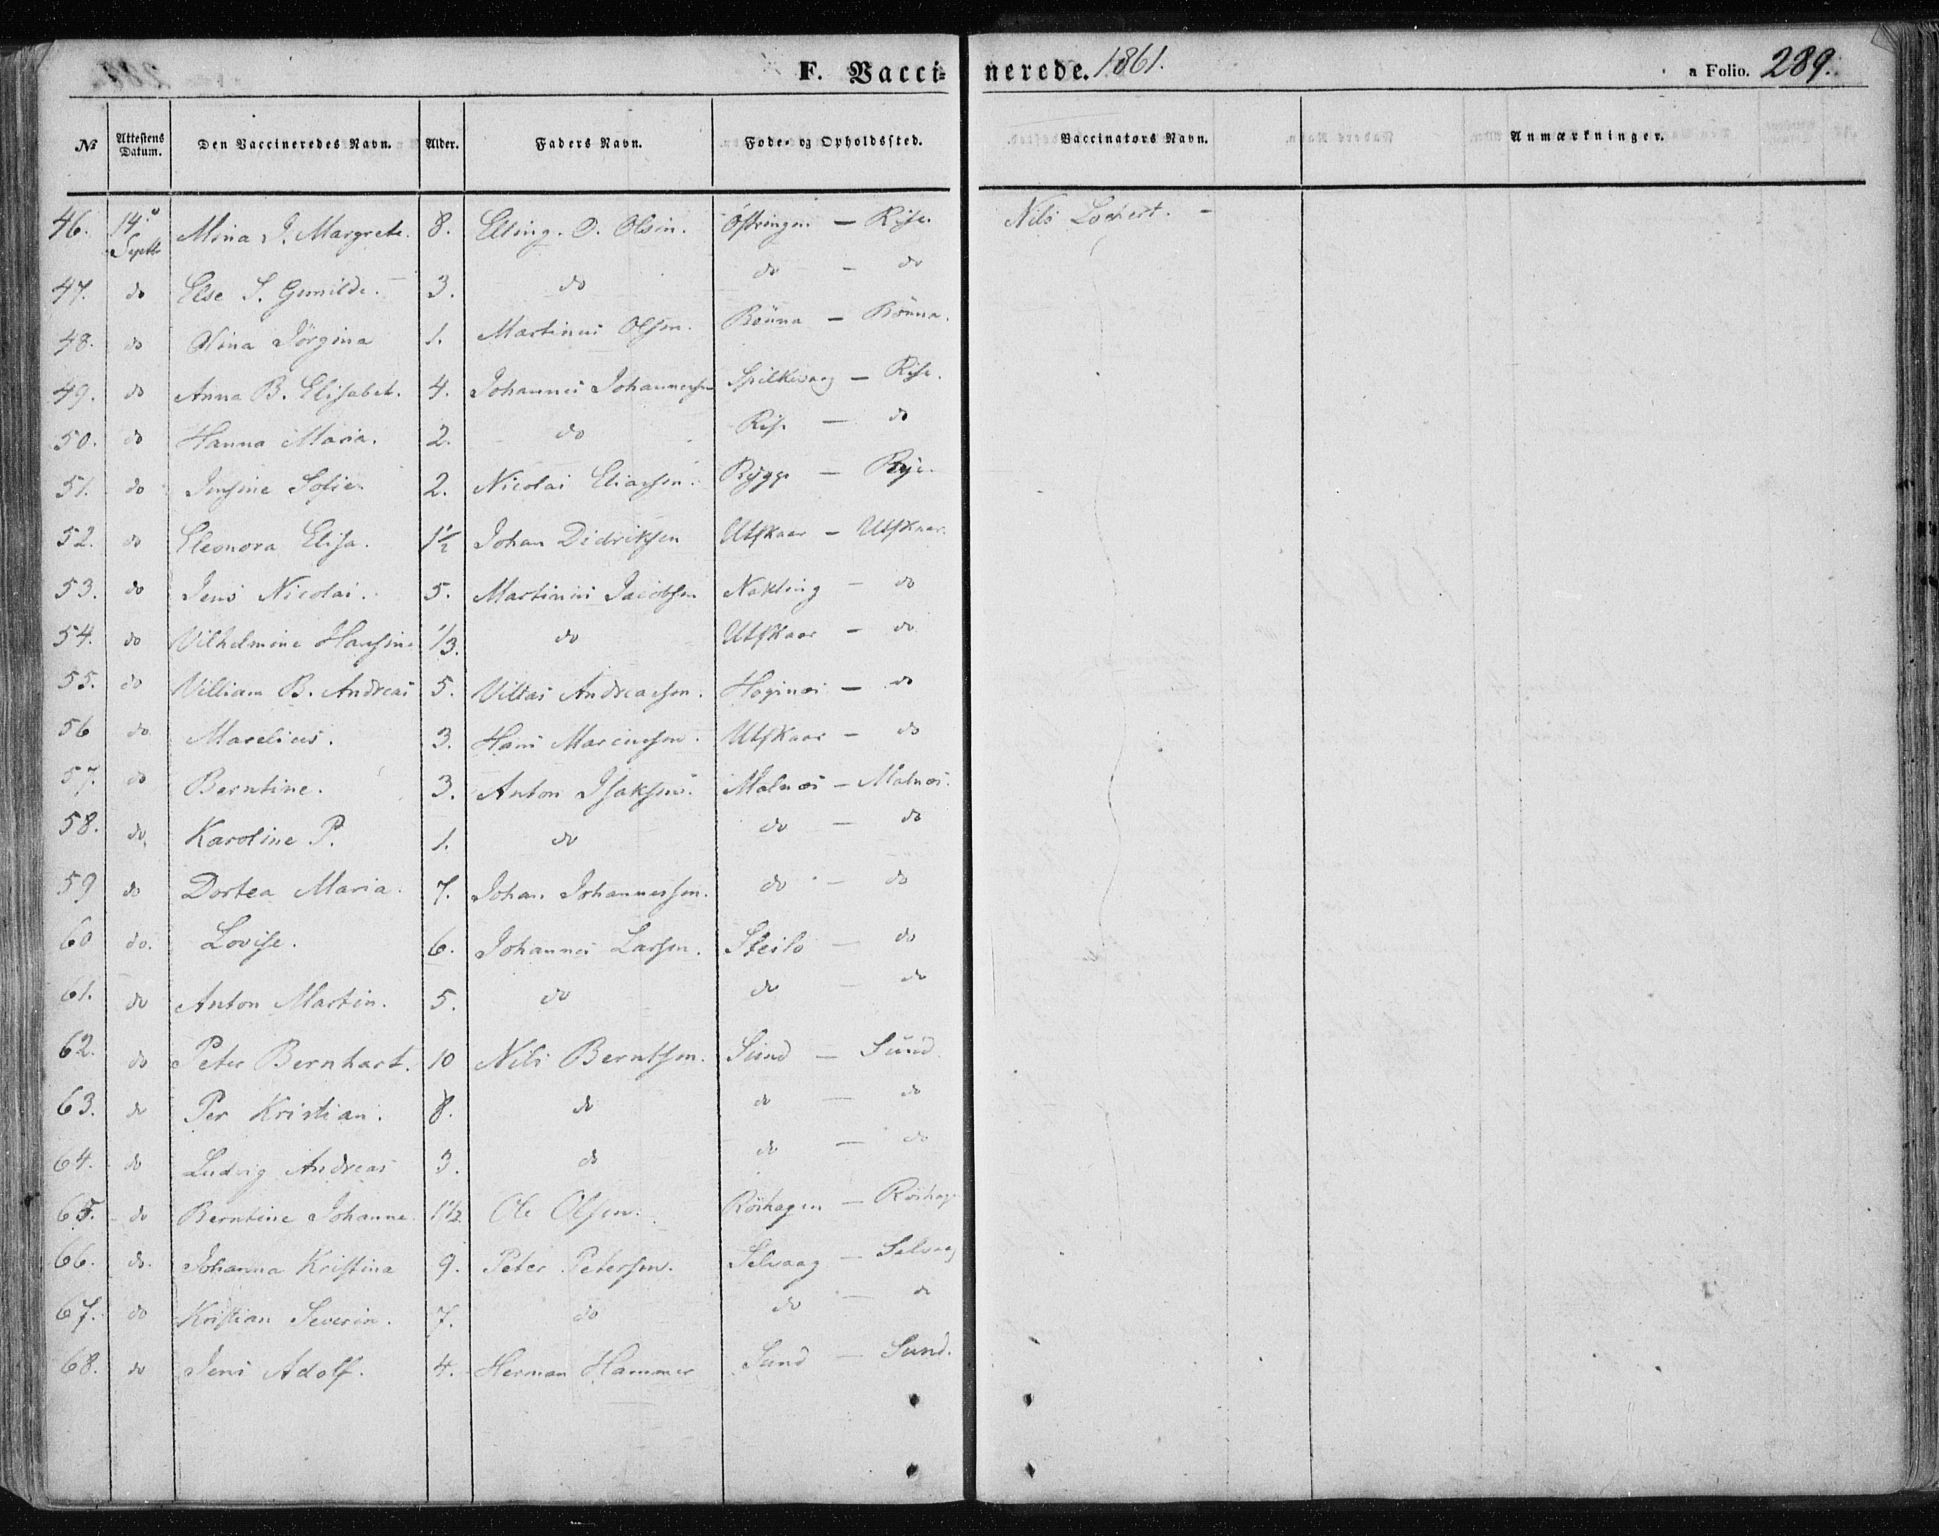 F. Vaccinerede. 1861. a Folio. 289.
№ Attestens Datum. Den Vaccineredes Navn. Alder. Faders Navn. Føde- og Opholdssted. Vaccinators Navn. Anmærkninger.
46. 14. Septb Mina J. Margrete. 8. Elling. O. Olsen. Östringen — Rise. Nils Lockert. –
47. do Else S. Gunilde. 3. do do — do
48. do Olina Jörgina 1. Martinus Olsen. Rönna — Rönna.
49. do Anna B. Elisabet. 4. Johannes Johannessen Spilkevaag — Rise.
50. do Hanna Maria. 2. do Rise — do
51. do Jensine Sofie. 2. Nicolai Eliassen. Rygge — Rise.
52. do Eleonora Elisa. 1½ Johan Didriksen Utskaar — Utskaar.
53. do Jens Nicolai. 5. Martinus Jacobsen Nakling — do
54. do Vilhelmine Hansine 1/3. do Utskaar — do
55. do Villiam B. Andreas 5. Villas Andreassen. Høginæs — do
56 do Marelius. 3. Hans Marcussen. Utskaar — do
57. do Berntine. 3. Anton Isaksen. Malnæs — Malnæs.
58. do. Karoline P. 1. do do — do
59 do Dortea Maria. 7. Johan Johannessen. do — do
60 do. Lovise. 6. Johannes Larsen. Steilo — do
61. do Anton Martin. 5. do do — do
62. do Peter Bernhart. 10 Nils Berntsen. Sund — Sund.
63. do Per Kristian. 8. do do — do
64. do Ludvig Andreas 3. do do — do
65. do Berntine Johanne. 1½ Ole Olsen. Röshagen — Röshag
66. do. Johanna Kristina 9. Peter Petersen. Selvaag — Selvaag
67. do Kristian Severin. 7. do do — do
68. do Jens Adolf. 4. Herman Hammer Sund — Sund.